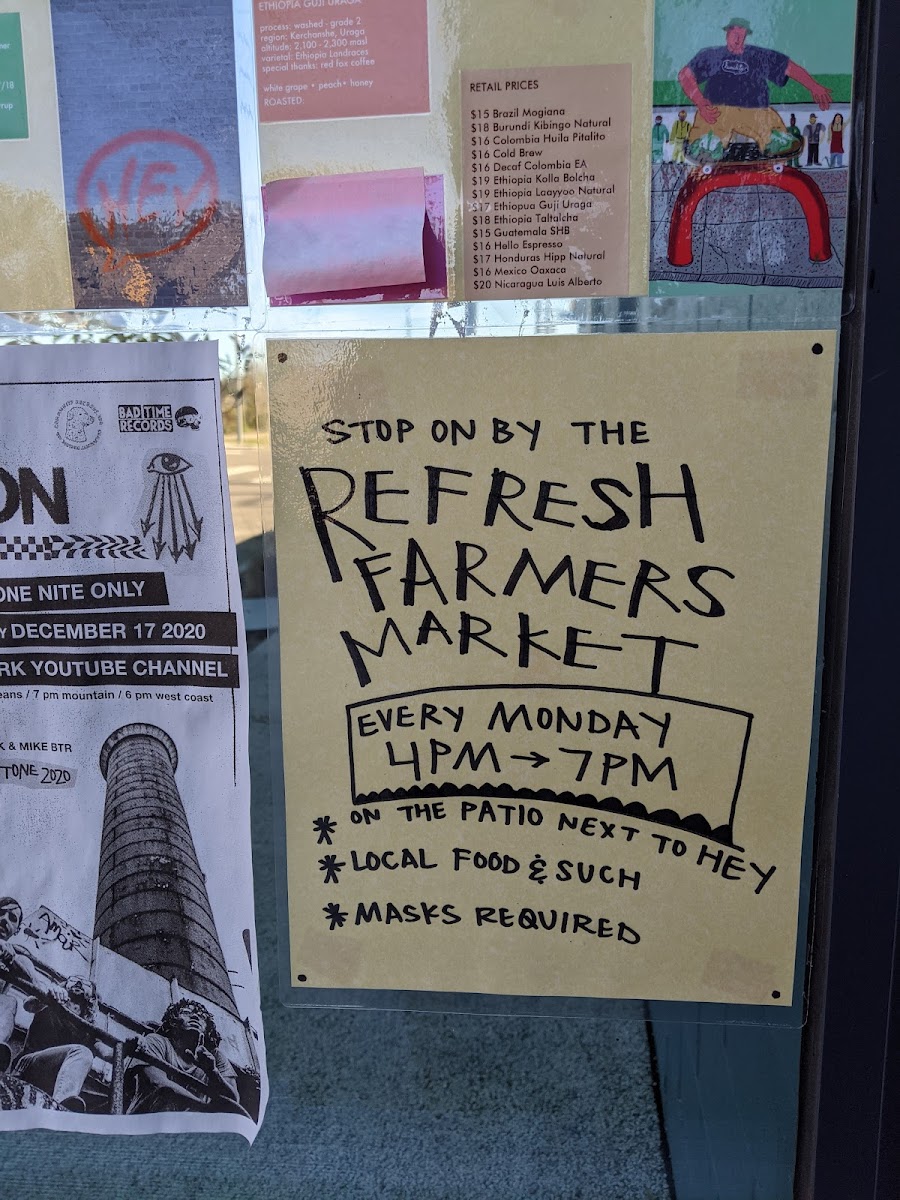 /18
rup
HEY
ETHIOPIA GUJI URAGA
process: washed - grade 2
region: Kerchanshe, Uraga
altitude: 2,100 - 2,300 masl
varietal: Ethiopia Landraces
special thanks: red fox coffee
white grape • peach • honey
ROASTED:
RETAIL PRICES
$15 Brazil Mogiana
$18 Burundi Kibingo Natural
$16 Colombia Huila Pitalito
$16 Cold Brew
$16 Decaf Colombia EA
$19 Ethiopia Kolla Bolcha
$19 Ethiopia Laayyoo Natural
$17 Ethiopua Guji Uraga
$18 Ethiopia Taltalcha
$15 Guatemala SHB
$16 Hello Espresso
$17 Honduras Hipp Natural
$16 Mexico Oaxaca
$20 Nicaragua Luis Alberto
BAD TIME
RECORDS
ON
ONE NITE ONLY
Y DECEMBER 17 2020
RK YOUTUBE CHANNEL
eans / 7 pm mountain / 6 pm west coast
K & MIKE BTR
TONE 2020
AMOUR
STOP ON BY THE
REFRESH
FARMERS
MARKET
EVERY MONDAY
4PM → 7PM
* ON THE PATIO NEXT TO HEY
* LOCAL FOOD & SUCH
* MASKS REQUIRED